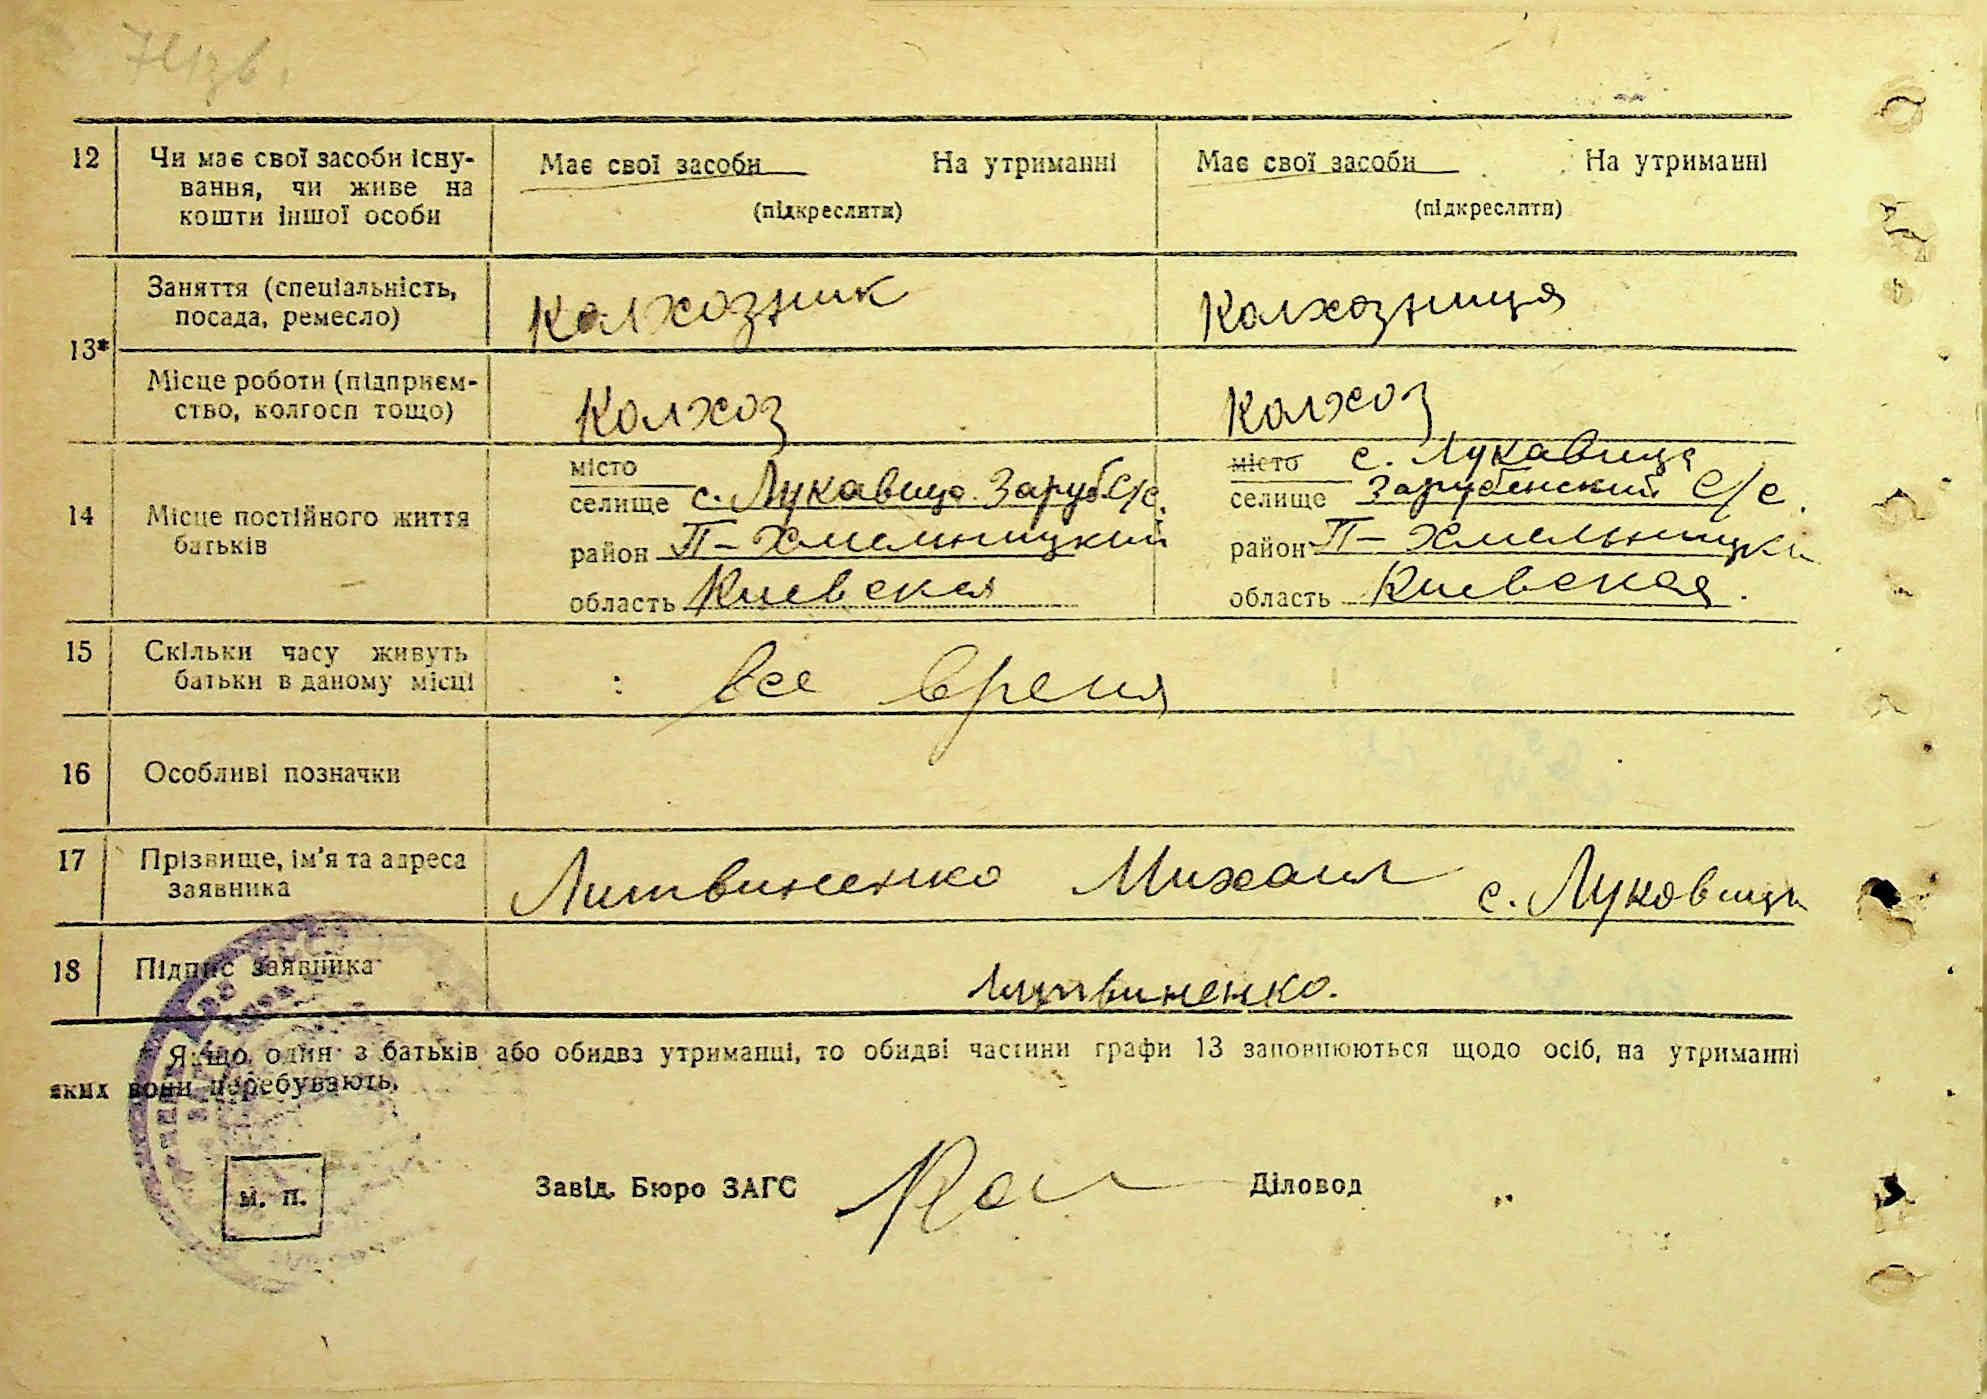 12 Чи має свої засоби існу-
вання, чи живе на
кошти іншої особи
Має свої засоби На утриманні
(підкреслити)
Має свої засоби На утриманні
(підкреслити)
13*
Заняття (спеціальність,
посада, ремесло)
Колхозник
Колхозниця
Місце роботи (підприєм-
ство, колгосп тощо)
Колхоз
Колхоз
14 Місце постійного життя
батьків
місто
селище с. Лукавица Заруб. С/с.
район П-Хмельницкий
область Киевская
місто с. Лукавица
селище Зарубенский С/с.
район П-Хмельницки
область Киевская.
15 Скільки часу живуть
батьки в даному місці
все время
16 Особливі позначки
17 Прізвище, ім'я та адреса
заявника
Литвиненко Михаил с. Луковица
18 Підпис заявника
Литвиненко.
Якщо один з батьків або обидва утриманці, то обидві частини графи 13 заповнюються щодо осіб, на утриманні
яких вони перебувають.
м. п.
Завід. Бюро ЗАГС Діловод